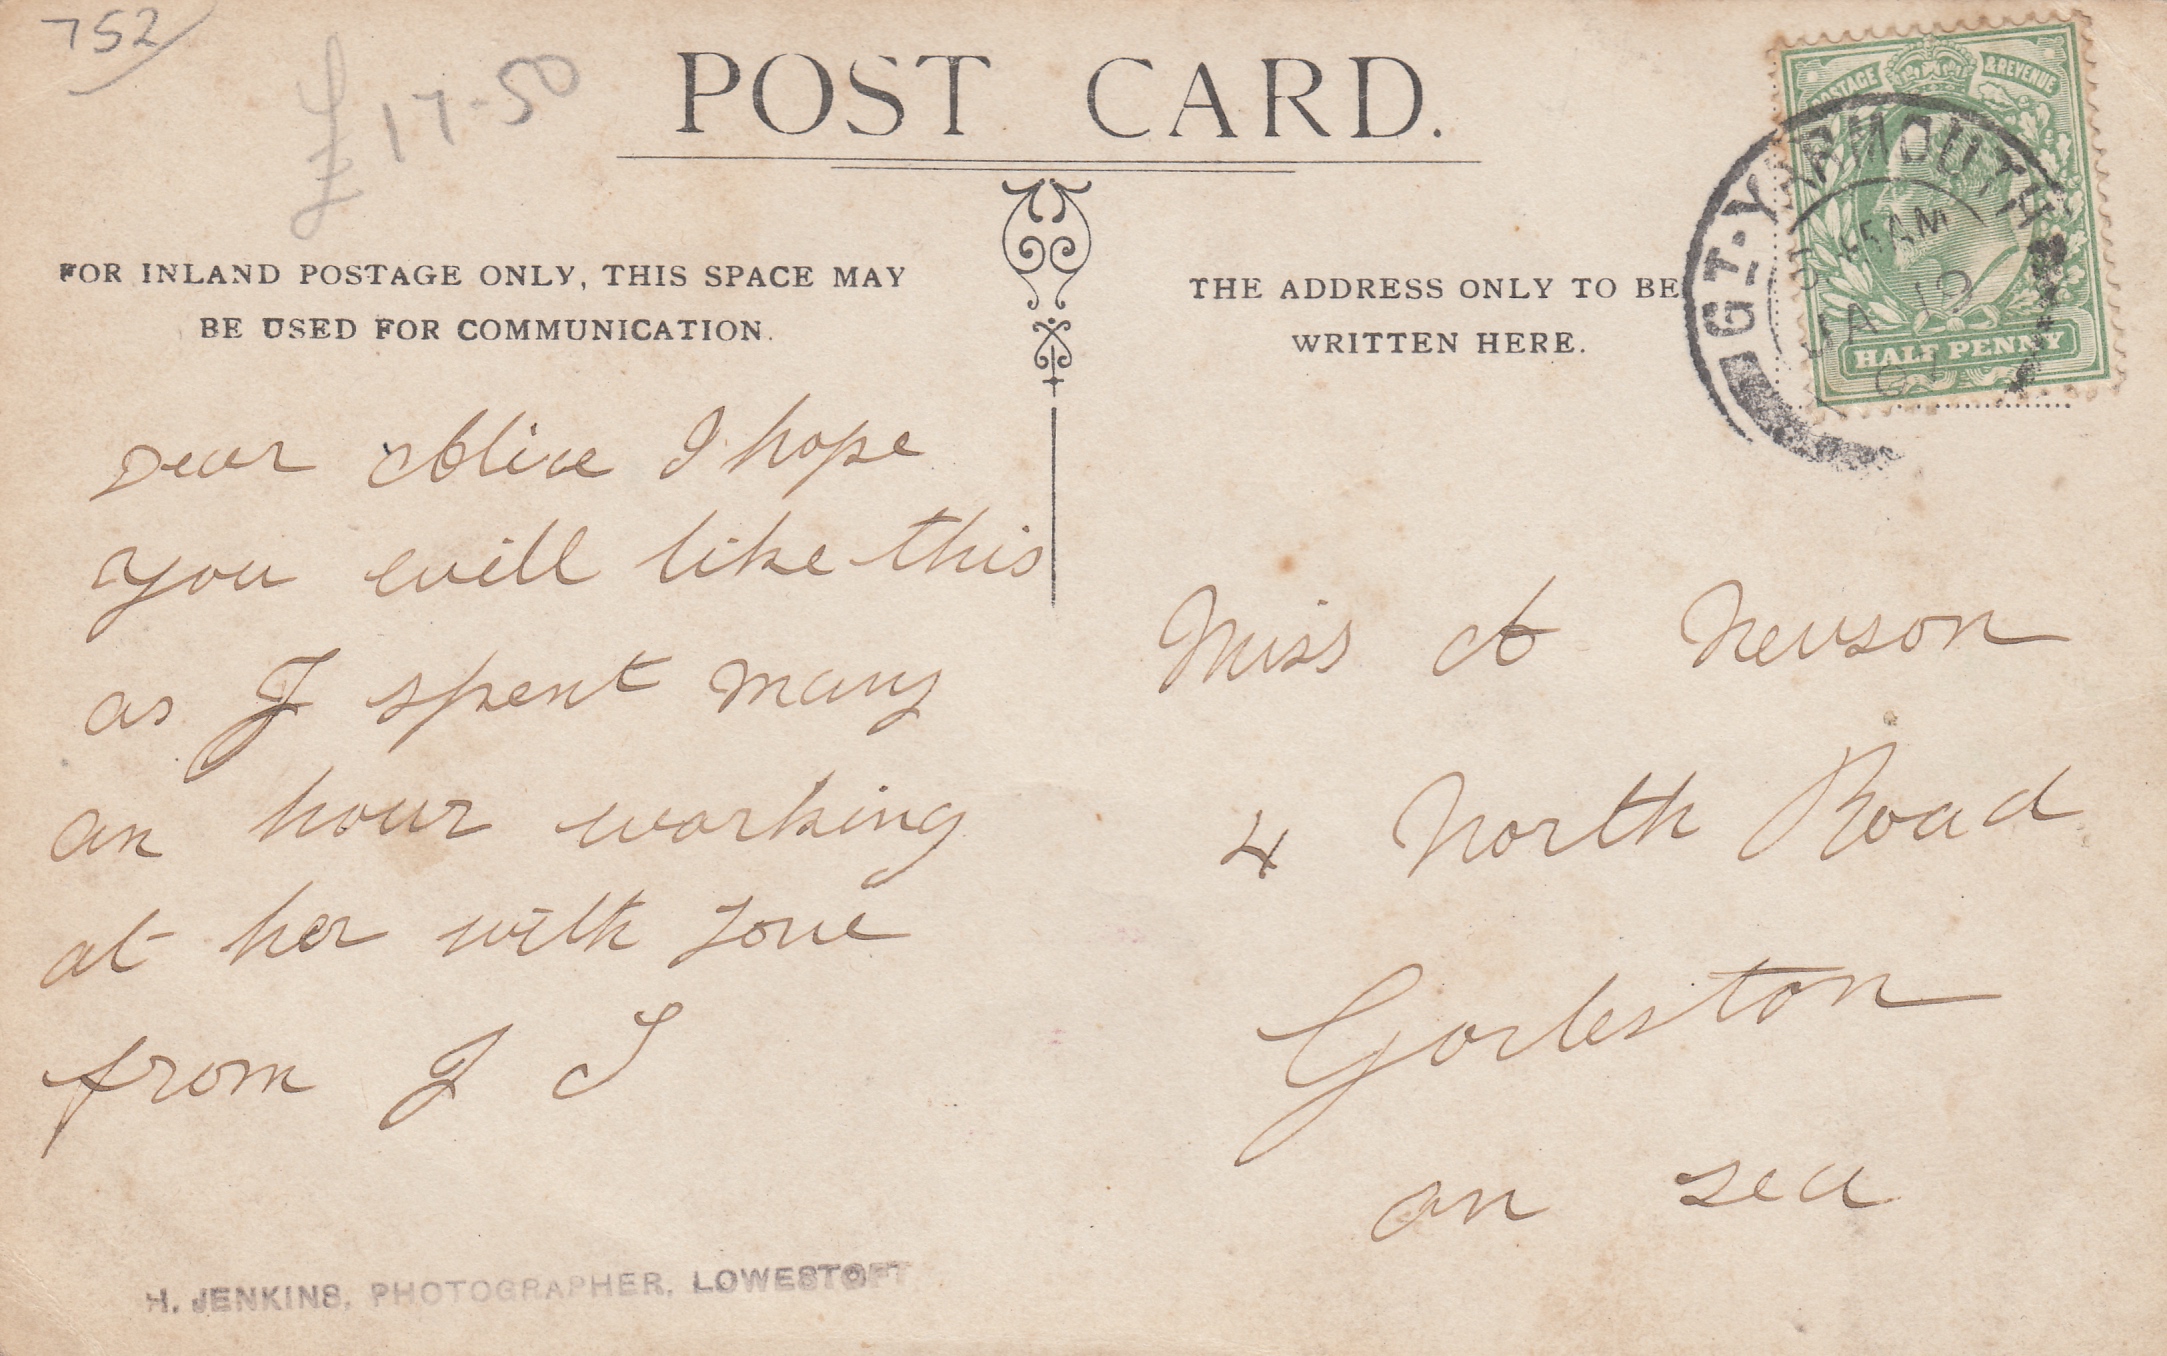 752
£17-50
POST CARD.
FOR INLAND POSTAGE ONLY, THIS SPACE MAY
BE USED FOR COMMUNICATION.
THE ADDRESS ONLY TO BE
WRITTEN HERE.
POSTAGE & REVENUE
HALF PENNY
GT. YARMOUTH
AM
JA 19
07
Dear Alice I hope
you will like this
as I spent many
an hour working
at her with Love
from J S
Miss A Newson
4 North Road
Gorleston
on sea
H. JENKINS, PHOTOGRAPHER, LOWESTOFT